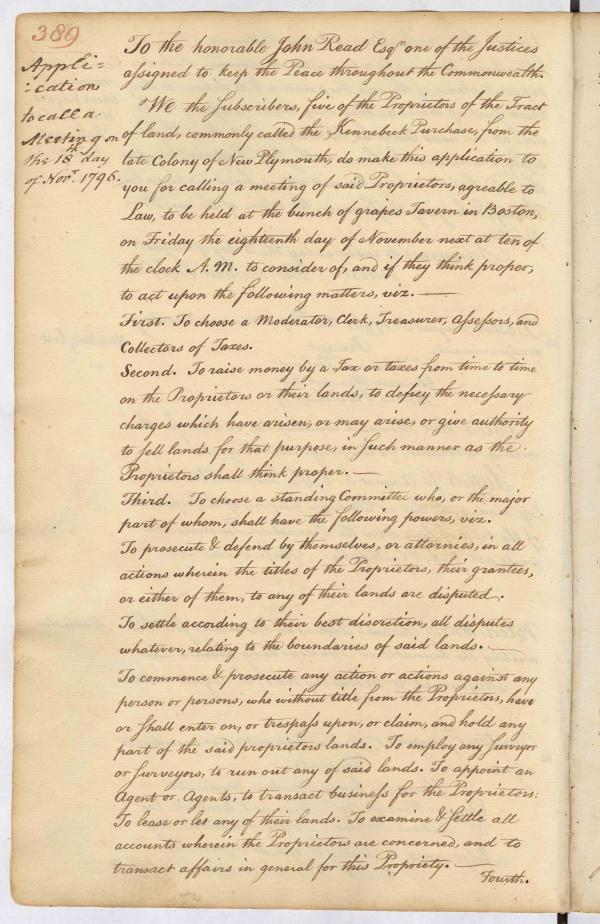 389
Appli=
:cation
to call a
Meeting on
the 18th day
of Novr. 1796.
To the honorable John Read Esqr. one of the Justices
assigned to keep the Peace throughout the Commonwealth.
We the Subscribers, five of the Proprietors of the Tract
of land, commonly called the Kennebeck Purchase, from the
late Colony of New Plymouth, do make this application to
you for calling a meeting of said Proprietors, agreable to
Law, to be held at the bunch of grapes Tavern in Boston,
on Friday the eighteenth day of November next at ten of
the clock A.M. to consider of, and if they think proper,
to act upon the following matters, viz. —
First. To choose a Moderator, Clerk, Treasurer, Assessors, and
Collectors of Taxes.
Second. To raise money by a Tax or taxes from time to time
on the Proprietors or their lands, to defrey the necessary
charges which have arisen, or may arise, or give authority
to sell lands for that purpose, in such manner as the
Proprietors shall think proper. —
Third. To choose a standing Committee who, or the major
part of whom, shall have the following powers, viz.
To prosecute & defend by themselves, or attornies, in all
actions wherein the titles of the Proprietors, their grantees,
or either of them, to any of their lands are disputed.
To settle according to their best discretion, all disputes
whatever, relating to the boundaries of said lands. —
To commence & prosecute any action or actions against any
person or persons, who without title from the Proprietors, have
or shall enter on, or trespass upon, or claim, and hold any
part of the said proprietors lands. To employ any surveyor
or surveyors, to run out any of said lands. To appoint an
Agent or Agents, to transact business for the Proprietors:
To lease or let any of their lands. To examine & settle all
accounts wherein the Proprietors are concerned, and to
transact affairs in general for this Propriety. —
Fourth.